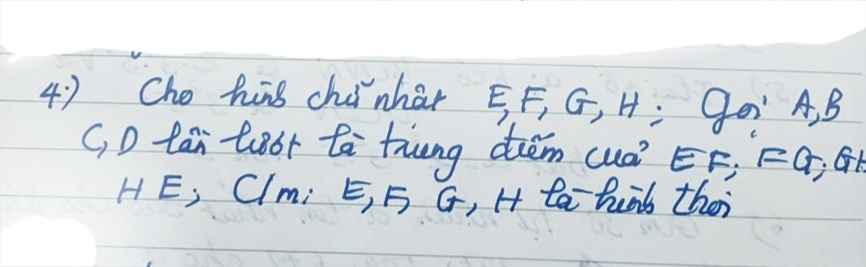 4.) Cho hình chữ nhật E,F,G,H; Gọi A,B
C,D lần lượt là trung điểm của EF; FG; GH
HE; C/m: E,F, G, H là hình thoi